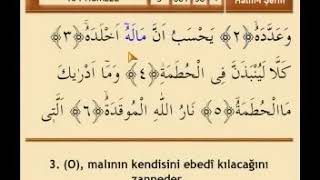 وَعَدَّدَهُۙ ﴿٢﴾ يَحْسَبُ اَنَّ مَالَهُٓ اَخْلَدَهُۚ ﴿٣﴾
كَلَّا لَيُنْبَذَنَّ فِي الْحُطَمَةِۘ ﴿٤﴾ وَمَٓا اَدْرٰيكَ
مَا الْحُطَمَةُۜ ﴿٥﴾ نَارُ اللّٰهِ الْمُوقَدَةُۙ ﴿٦﴾ اَلَّت۪ي
3. (O), malının kendisini ebedî kılacağını
zanneder.